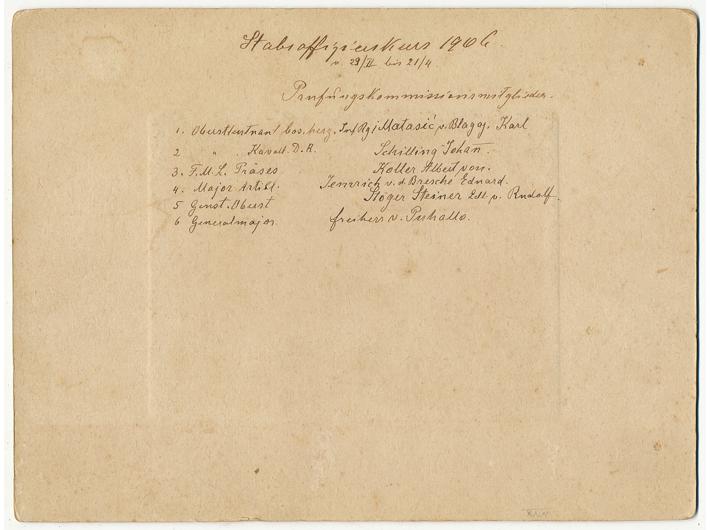 Stabsoffizierskurs 1906.
v. 29/II bis 21/4
Prüfungskommissionsmitglieder.
1. Oberstleutnant bos. herz. Inf Rg; Matasić v. Blagaj. Karl
2 " " . Kavall. D.R. Schilling Johan
3. F.M.L. Präses Koller Albert von.
4. Major Artill. Jemrich v. d. Bresche Eduard.
5 Genst. Oberst Stöger Steiner Edl. v. Rudolf.
6 Generalmajor. freiherr v. Puhallo.